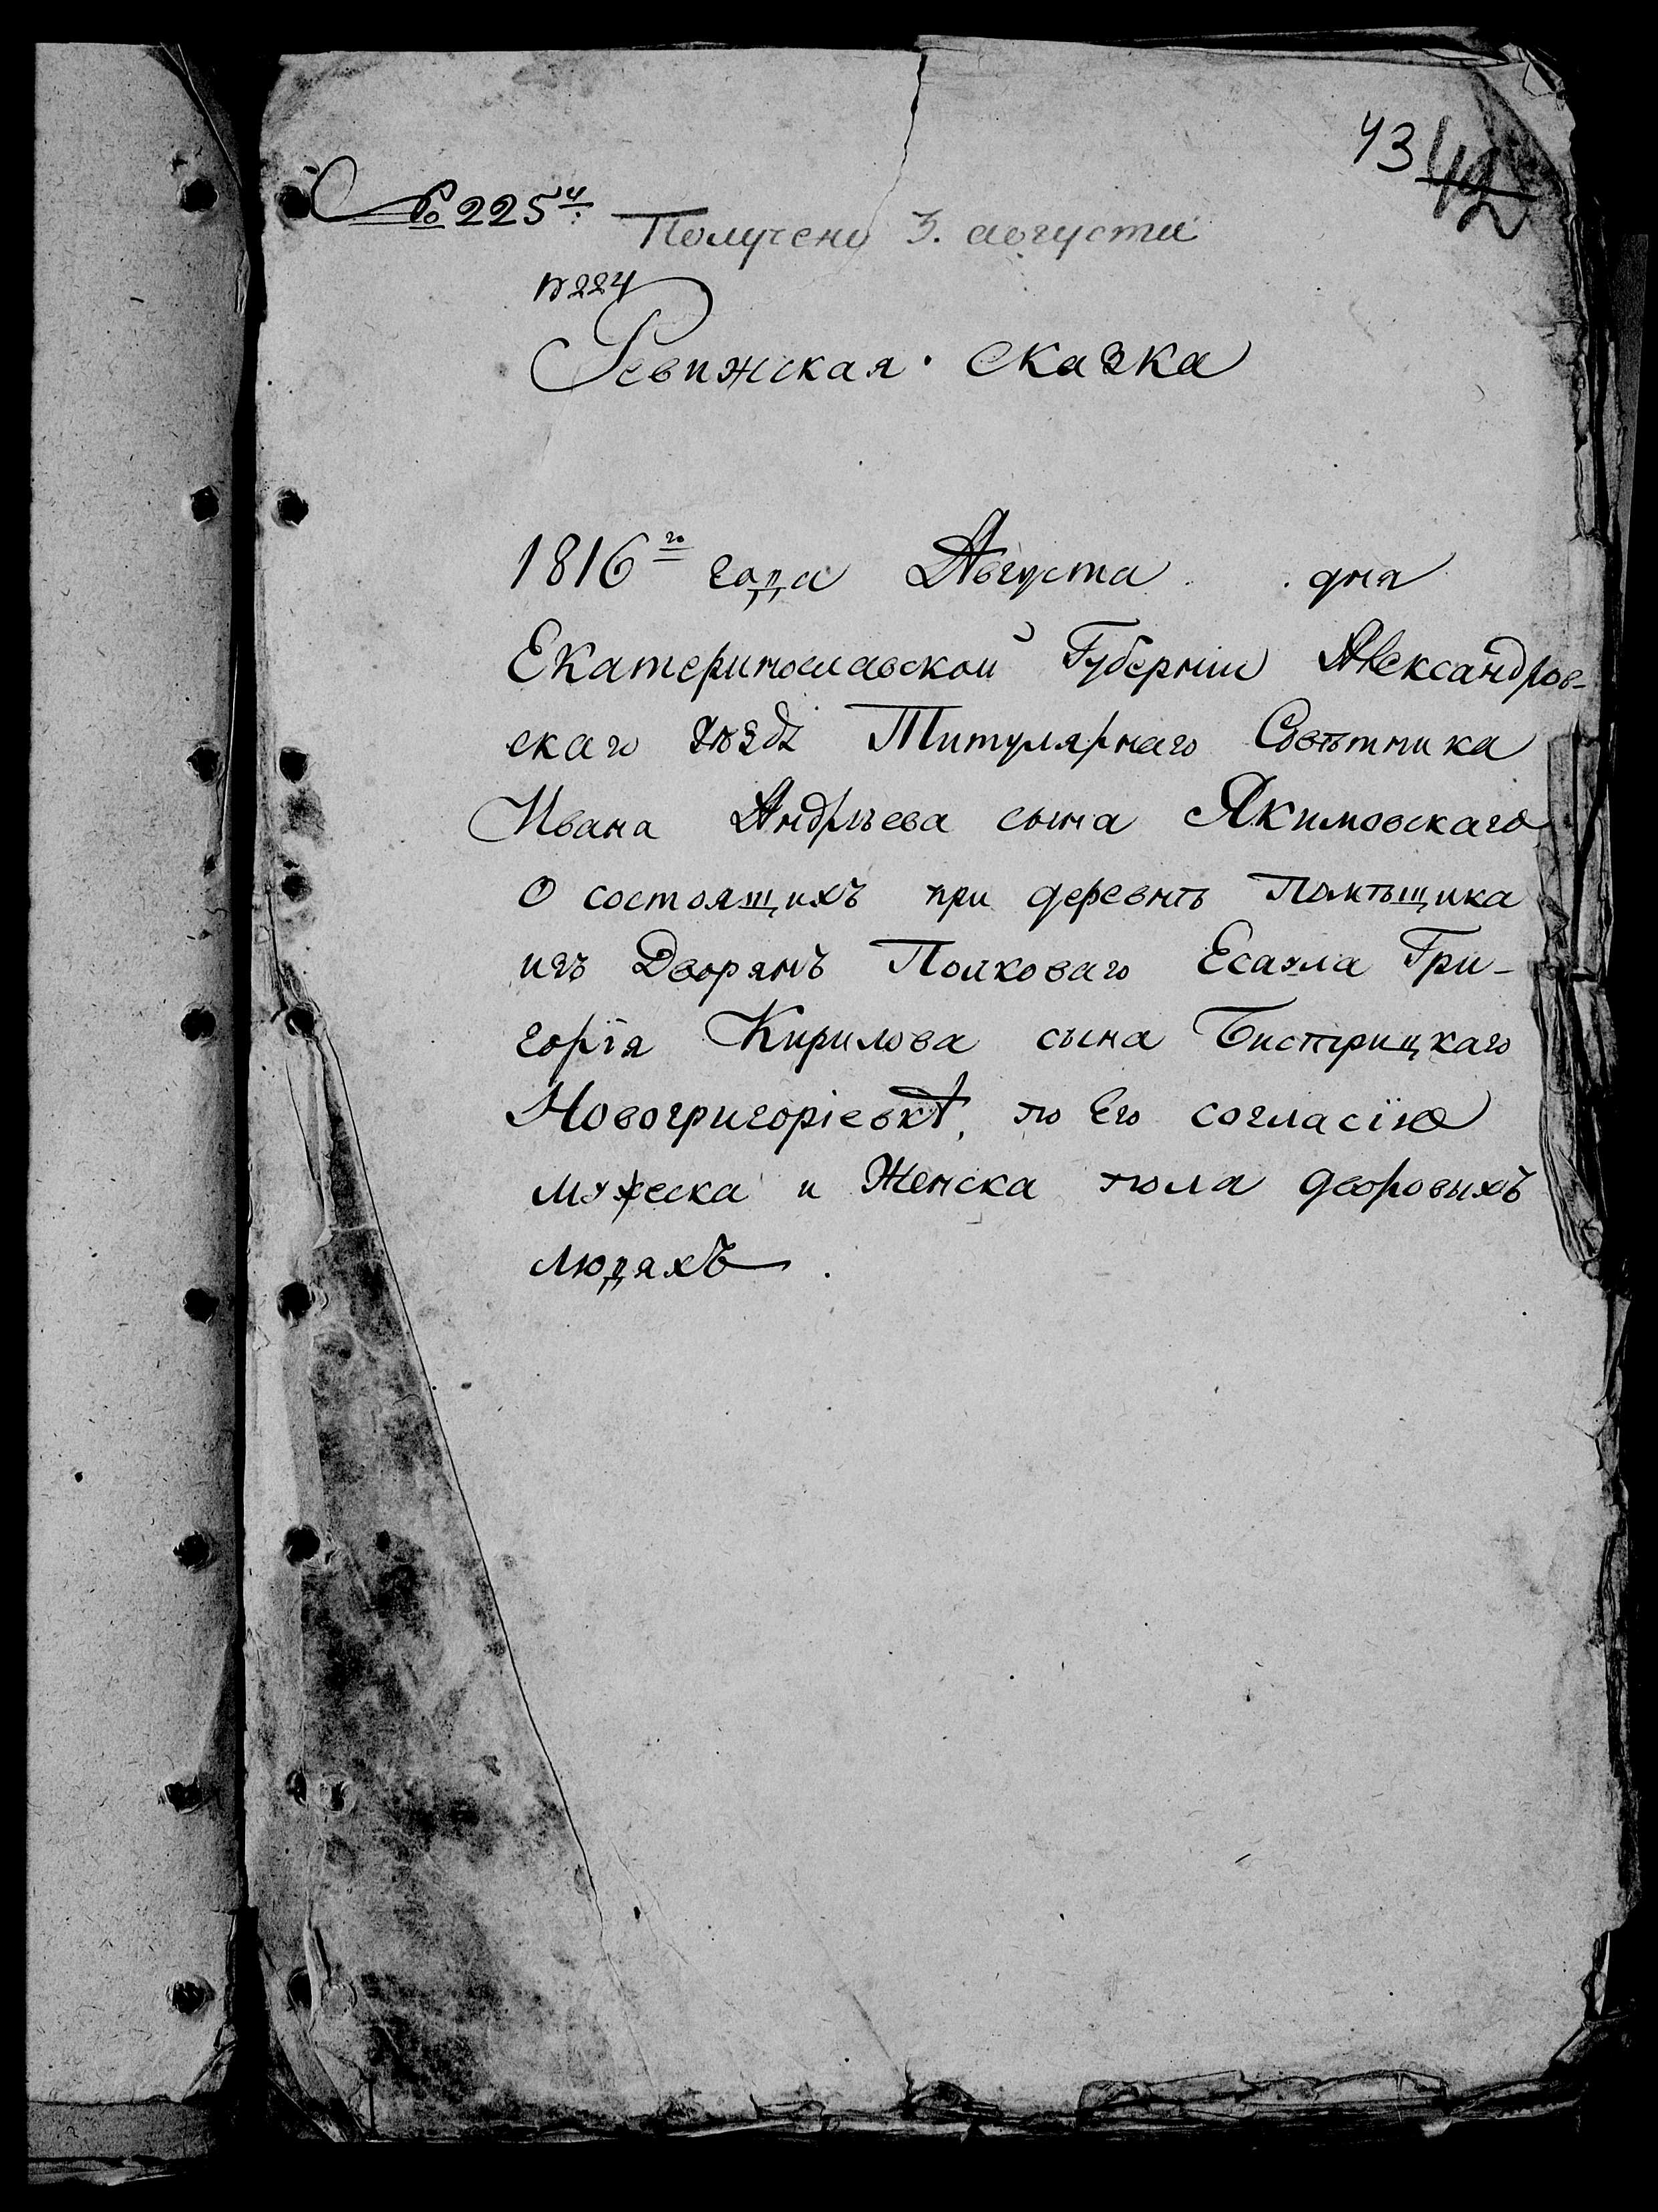 43 42
№ 225й
Получено 3. августа
№224
Ревижская сказка
1816го года Августа дня
Екатеринославской Губерніи Александров-
скаго уѣзда Титулярнаго Совѣтника
Ивана Андрѣева сына Якимовскаго
О состоящихъ при деревнѣ Помѣщика
изъ Дворянъ Полковаго Есаула Гри-
горїя Кирилова сына Бистрицкаго
Новогригоріевкѣ, по Его согласїю
мужеска и Женска пола дворовыхъ
людяхъ.